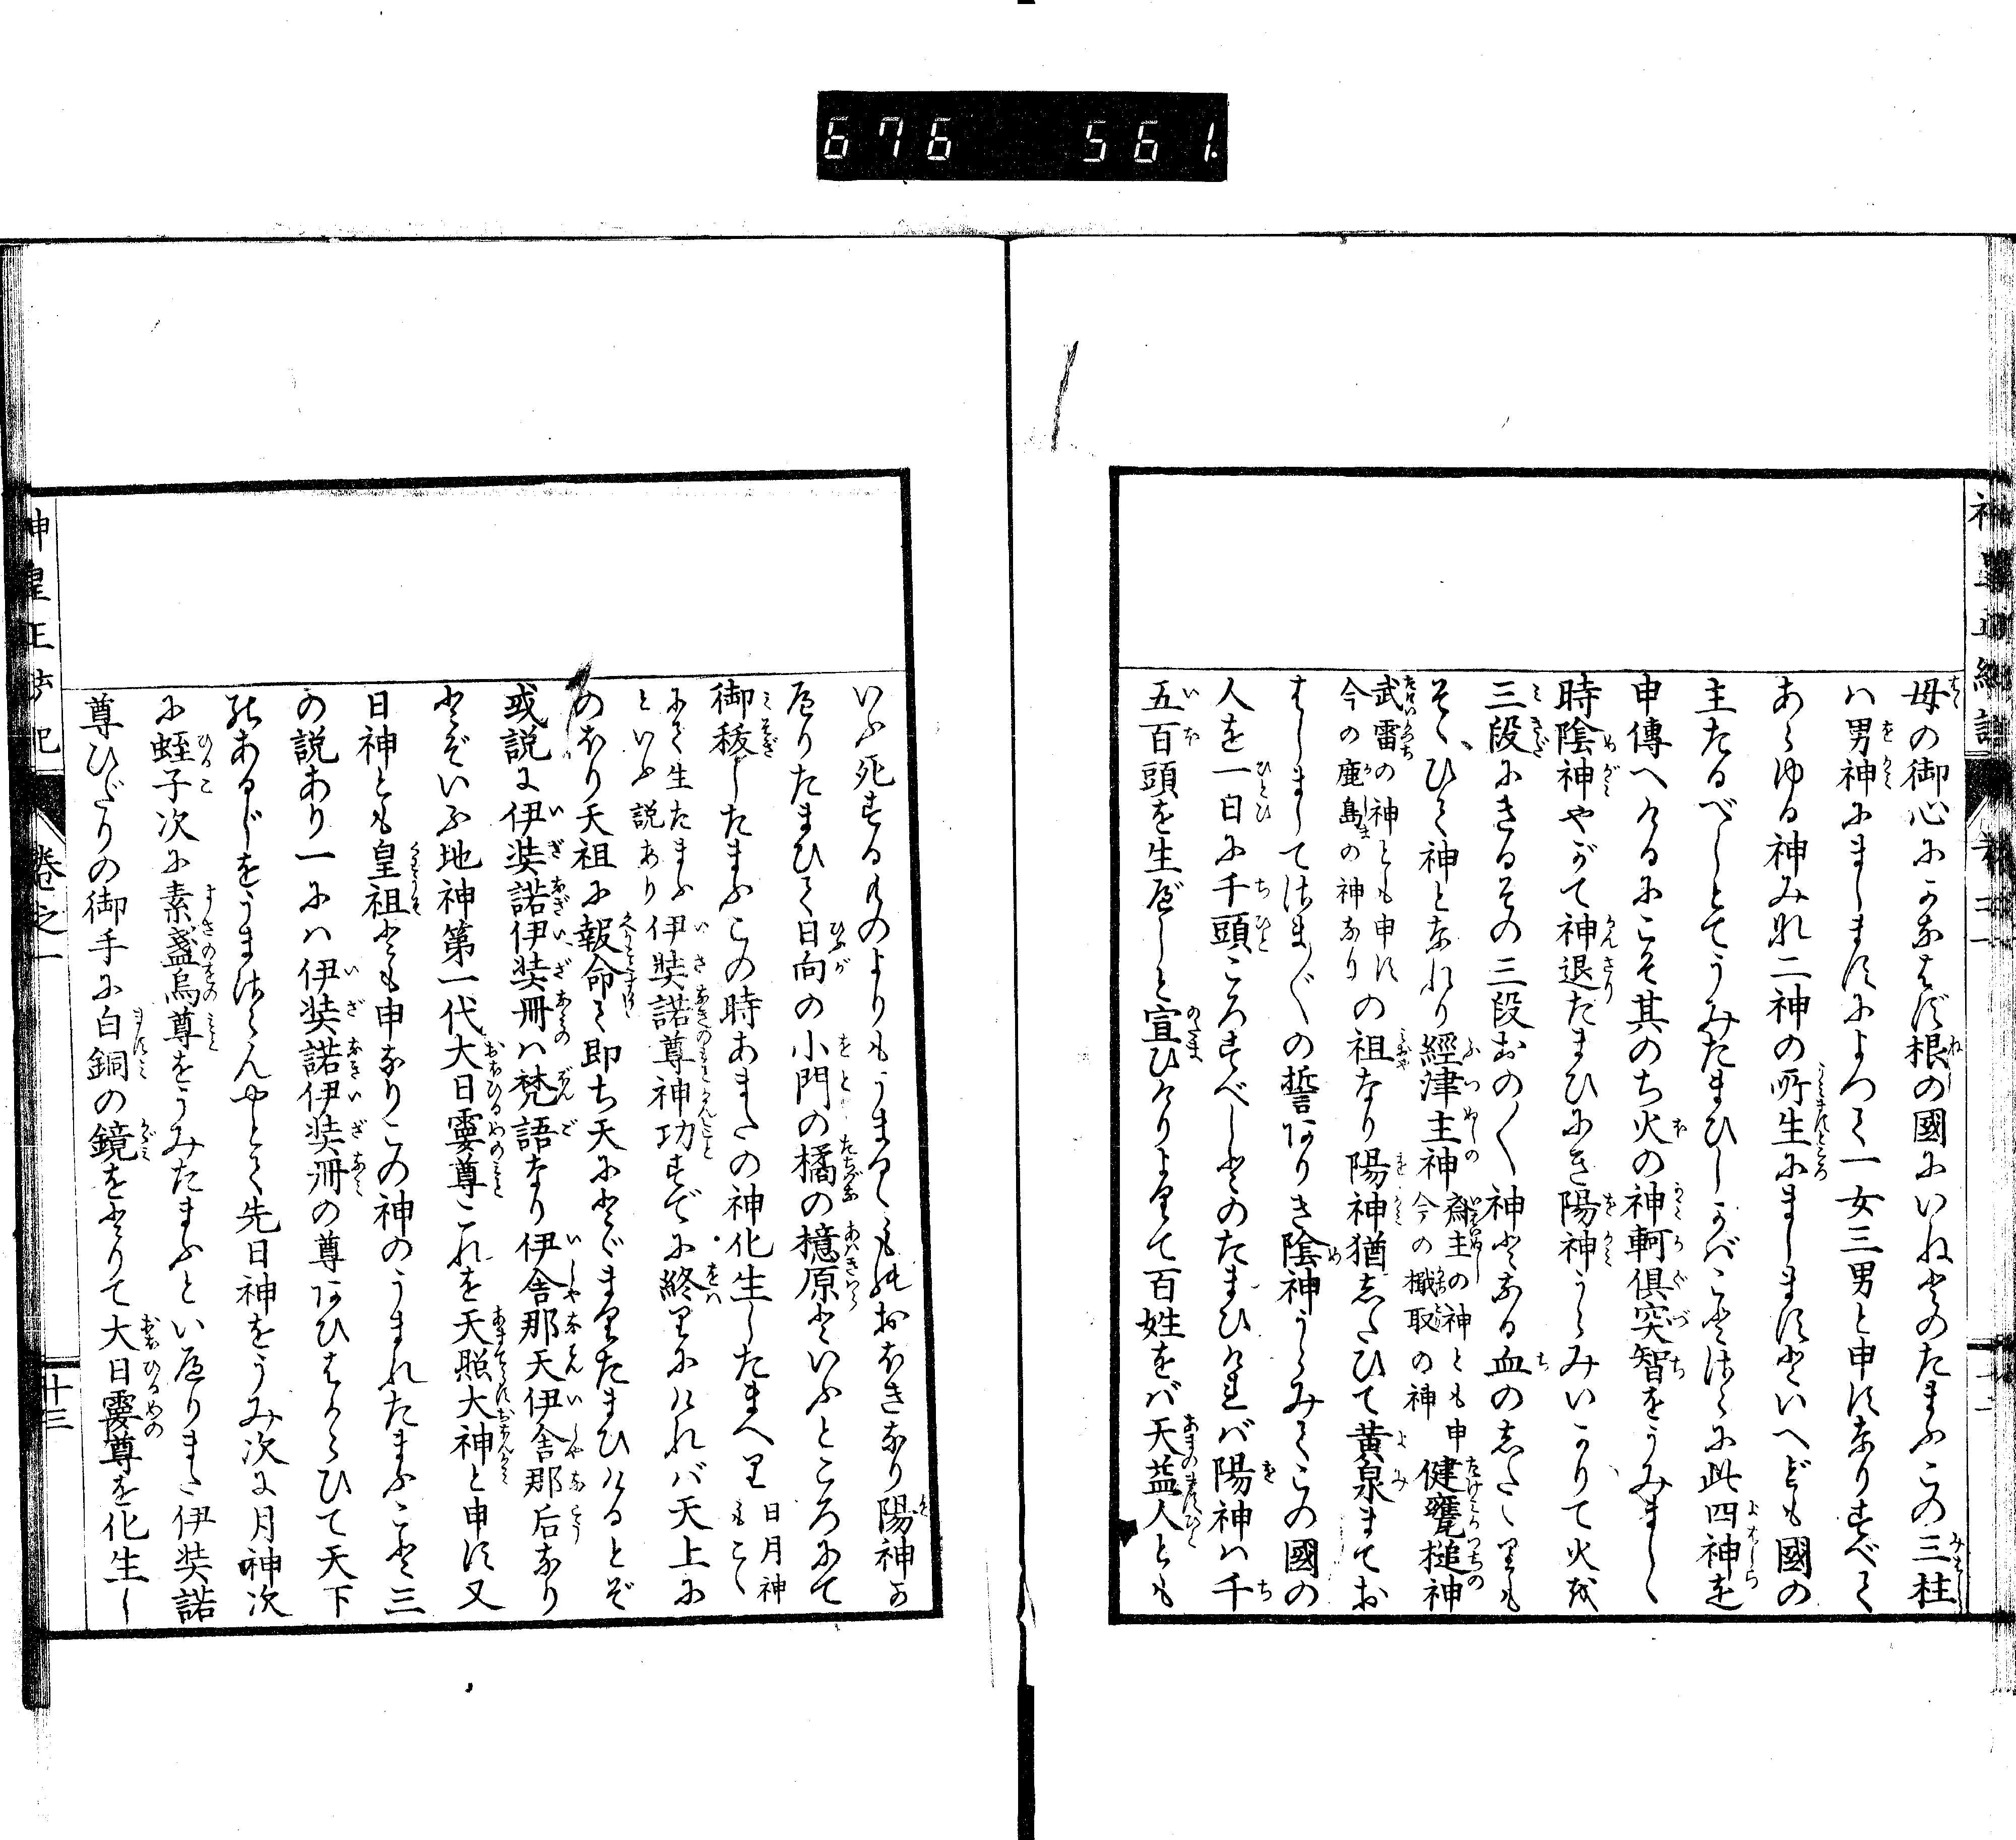 676 561.
神皇正統記
母の御心にかなはず根の國にいねとのたまふこの三柱
ハ男神にましますによつて一女三男と申すなりすべて
あらゆる神みな二神の所生にましますといへども國の
主たるべしとてうみたまひしかばことさらに此四神を
申傳へけるにこそ其のち火の神軻倶突智をうみまし〱
時陰神やがて神退たまひにき陽神うらみいかりて火を
三段にきるその三段おの〱神となる血のしたゝりも
そゝひて神となれり經津主神
齋主の神とも申
今の檝取の神
健甕槌神
武雷の神とも申す
今の鹿島の神なり
の祖なり陽神猶したひて黄泉まてお
はしましてさま〴〵の誓ありき陰神うらみてこの國の
人を一日に千頭ころすべしとのたまひけれバ陽神ハ千
五百頭を生べしと宣ひけりよりて百姓をバ天益人とも
いふ死するものよりもうまるゝものおほきなり陽神か
へりたまひて日向の小門の橘の檍原といふところにて
御秡したまふこの時あまたの神化生したまへり
日月神
もこゝ
にて生たまふ
といふ説あり
伊弉諾尊神功すでに終りにけれバ天上に
のぼり天祖に報命て即ち天にとゞまりたまひけるとぞ
或説に伊弉諾伊弉冊ハ梵語なり伊舎那天伊舎那后なり
とぞいふ地神第一代大日孁尊これを天照大神と申す又
日神とも皇祖とも申なりこの神のうまれたまふこと三
の説あり一にハ伊弉諾伊弉冊の尊あひはからひて天下
のあるじをうまざらんやとて先日神をうみ次に月神次
に蛭子次に素盞烏尊をうみたまふといへりまた伊弉諾
尊ひだりの御手に白銅の鏡をとりて大日孁尊を化生し
神皇正統記
卷之一
十三